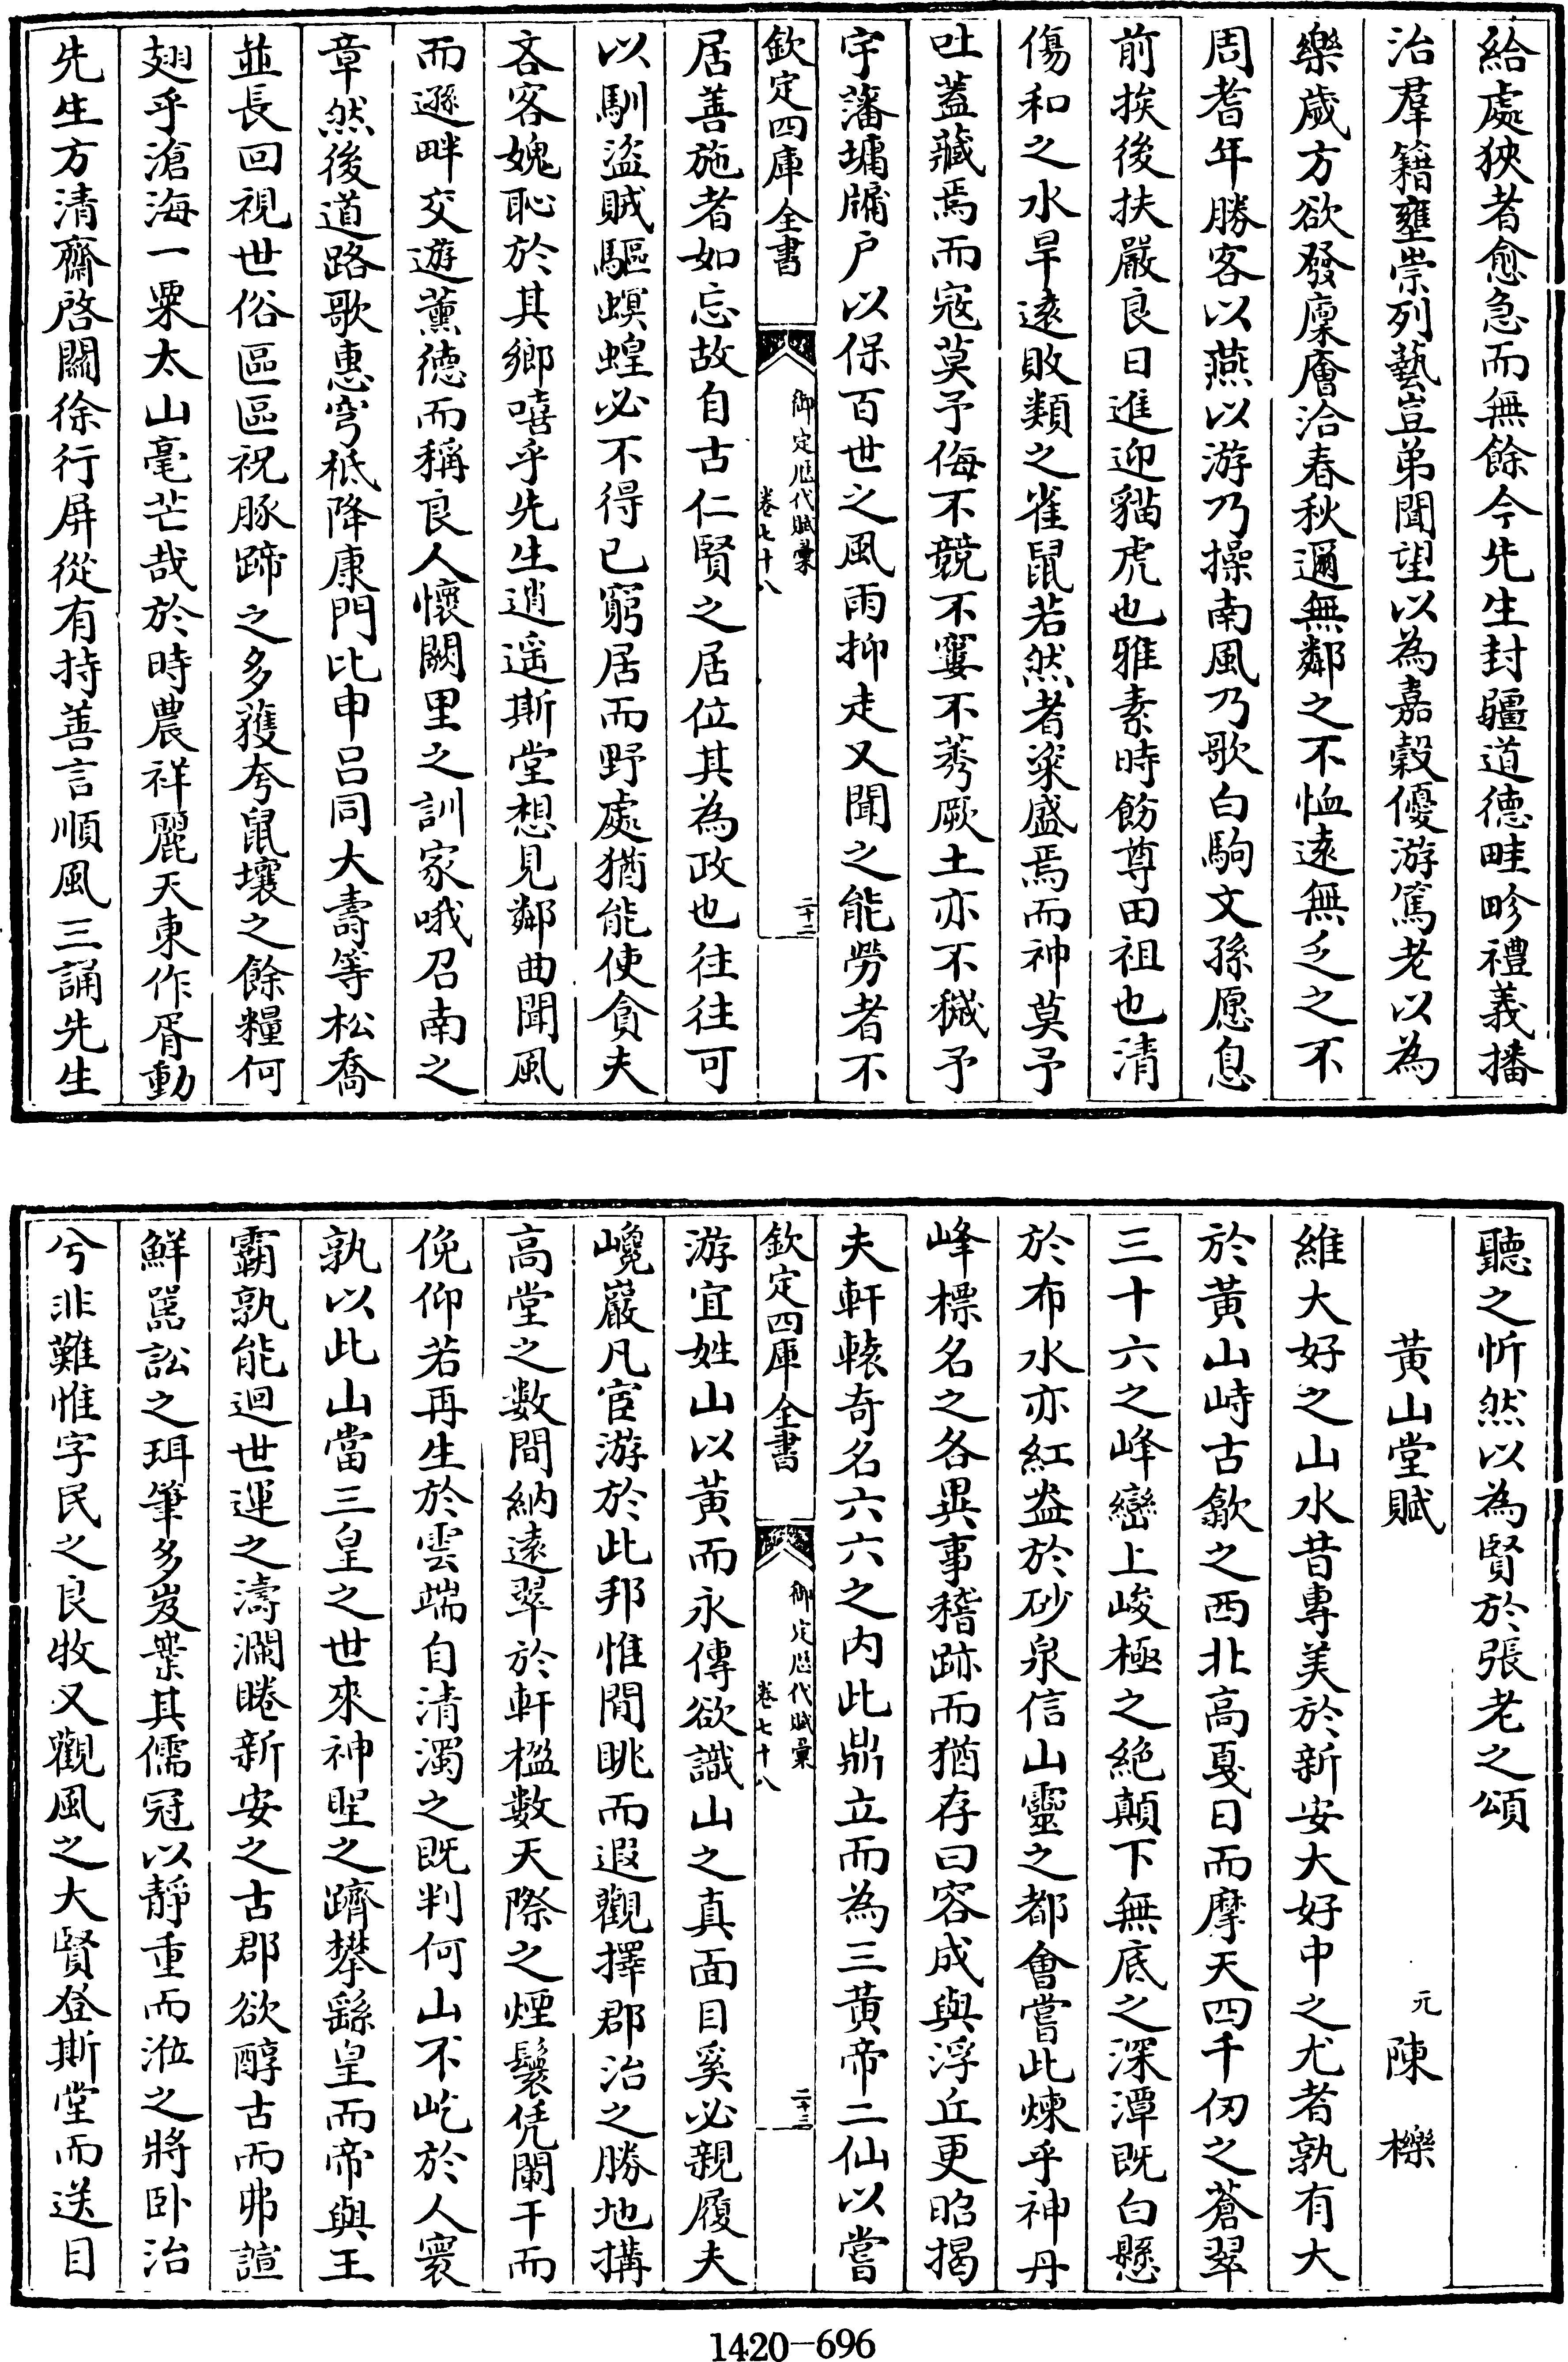 給處狹者愈急而無餘今先生封疆道德畦畛禮義播
治羣籍壅崇列藝豈弟聞望以為嘉穀優游篤老以為
樂歲方欲發廩廥洽春秋邇無鄰之不恤遠無乏之不
周耆年勝客以燕以游乃操南風乃歌白駒文孫愿息
前挨後扶嚴良日進迎貓虎也雅素時飭尊田祖也清
傷和之水旱遠敗類之雀鼠若然者粢盛焉而神莫予
吐蓋藏焉而寇莫予侮不競不窶不莠厥土亦不穢予
宇藩墉牖户以保百世之風雨抑走又聞之能勞者不
欽定四庫全書
御定歷代賦彙
卷七十八
二十二
居善施者如忘故自古仁賢之居位其為政也往往可
以馴盜賊驅螟蝗必不得已窮居而野處猶能使貪夫
吝客媿恥於其鄉嘻乎先生逍遥斯堂想見鄰曲聞風
而遜畔交遊薰德而稱良人懷闕里之訓家哦召南之
章然後道路歌惠穹祗降康門比申吕同大壽等松喬
並長回視世俗區區祝豚蹄之多獲夸鼠壤之餘糧何
翅乎滄海一粟太山毫芒哉於時農祥麗天東作胥動
先生方清齋啓關徐行屏從有持善言順風三誦先生
聽之忻然以為賢於張老之頌
黃山堂賦
元 陳 櫟
維大好之山水昔專美於新安大好中之尤者孰有大
於黃山峙古歙之西北高戛日而摩天四千仞之蒼翠
三十六之峰巒上峻極之絕顛下無底之深潭既白懸
於布水亦紅益於砂泉信山靈之都會嘗此煉乎神丹
峰標名之各異事稽跡而猶存曰容成與浮丘更昭揭
夫軒轅奇名六六之内此鼎立而為三黃帝二仙以嘗
欽定四庫全書
御定歷代賦彙
卷七十八
二十三
游宜姓山以黃而永傳欲識山之真面目奚必親履夫
巉巖凡宦游於此邦惟閒眺而遐觀擇郡治之勝地搆
高堂之數間納遠翠於軒楹數天際之煙鬟凭闌干而
俛仰若再生於雲端自清濁之既判何山不屹於人寰
孰以此山當三皇之世來神聖之躋攀繇皇而帝與王
霸孰能迴世運之濤瀾睠新安之古郡欲醇古而弗諠
鮮嚚訟之珥筆多岌業其儒冠以靜重而涖之將卧治
兮非難惟字民之良牧又觀風之大賢登斯堂而送目
1420-696